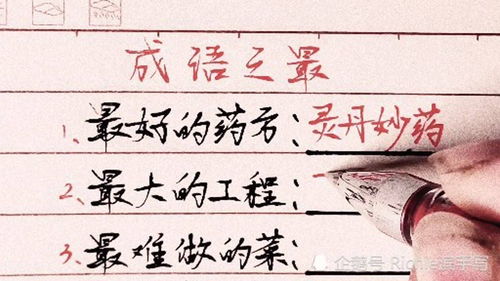 成语之最
1、最好的药方：灵丹妙药
2、最大的工程：
3、最难做的菜：
企鹅号 Richie追手写